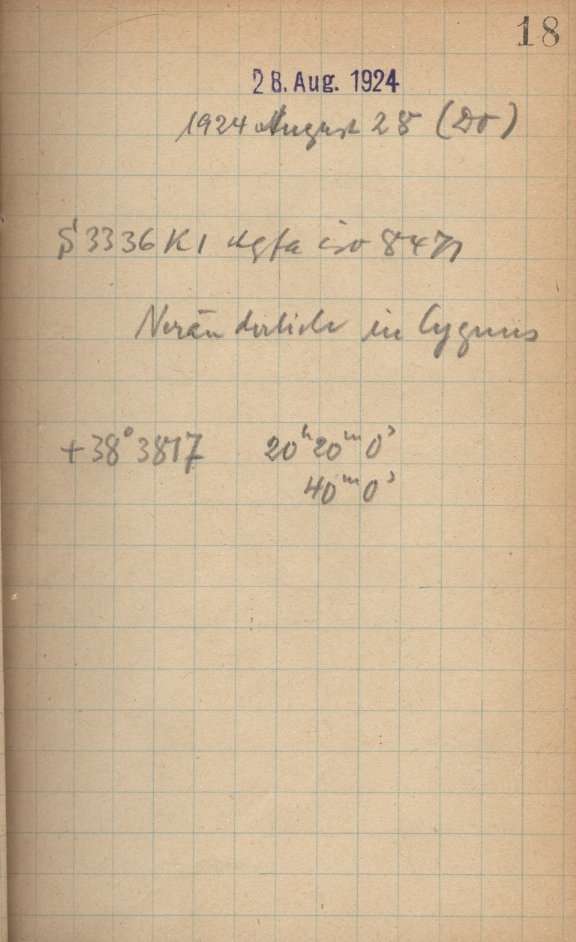 18
28. Aug. 1924
1924 August 28 (Do)
S 3336 K1 Agfa iso 8471
Veränderliche in Cygnus
+38° 3817 20ʰ20ᵐ0ˢ
40ᵐ0ˢ